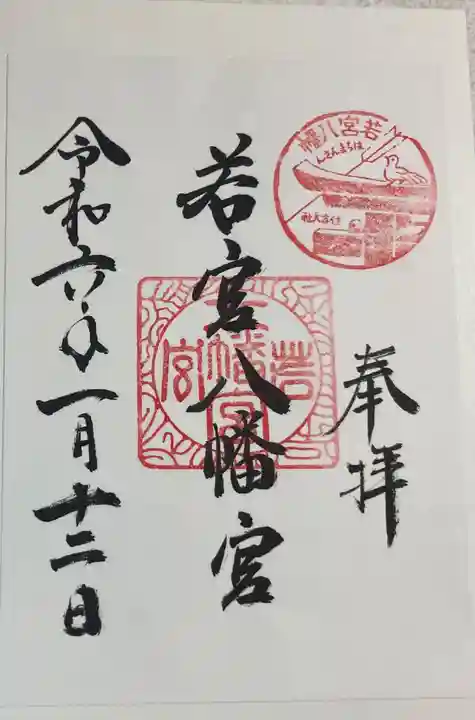 奉拝
若宮八幡宮
令和六年一月十二日
若宮八幡
はちまんさん
若宮八幡宮